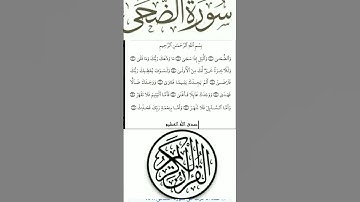 سورة الضحى
بسم الله الرحمن الرحيم
والضحى ۝ والليل إذا سجى ۝ ما ودعك ربك وما قلى ۝
وللآخرة خير لك من الأولى ۝ ولسوف يعطيك ربك
فترضى ۝ ألم يجدك يتيما فآوى ۝ ووجدك ضالا
فهدى ۝ ووجدك عائلا فأغنى ۝ فأما اليتيم فلا تقهر ۝
وأما السائل فلا تنهر ۝ وأما بنعمة ربك فحدث ۝
صدق الله العظيم
القرآن الكريم